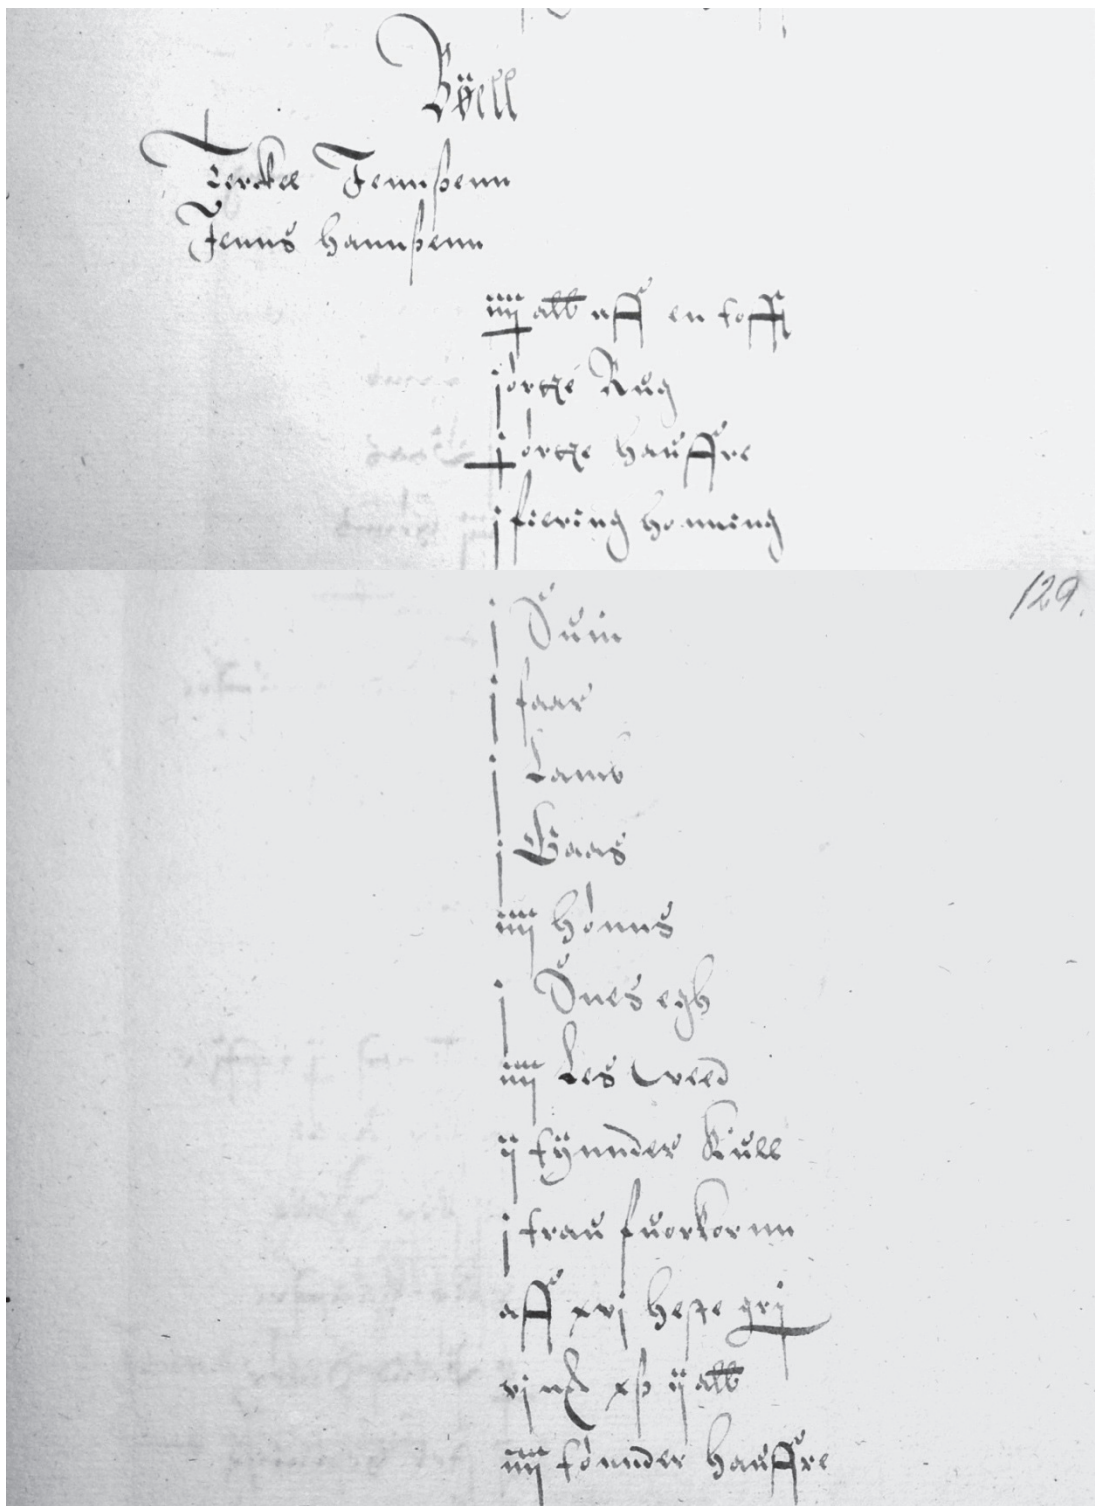 Bøell
Terckel Jennßenn
Jenns Hannßenn
iiij alb aff en tofft
j ørtze Rug
j ørtze hauffre
j fiering honning
129.
j Suin
j faar
j Lamb
j Gaas
iiij hønns
j Snes egh
iiij Les Weed
ij tÿnnder Kull
j trau fuorkornn
aff xvj heste
vj xß ij alb
iiij tønnder hauffre